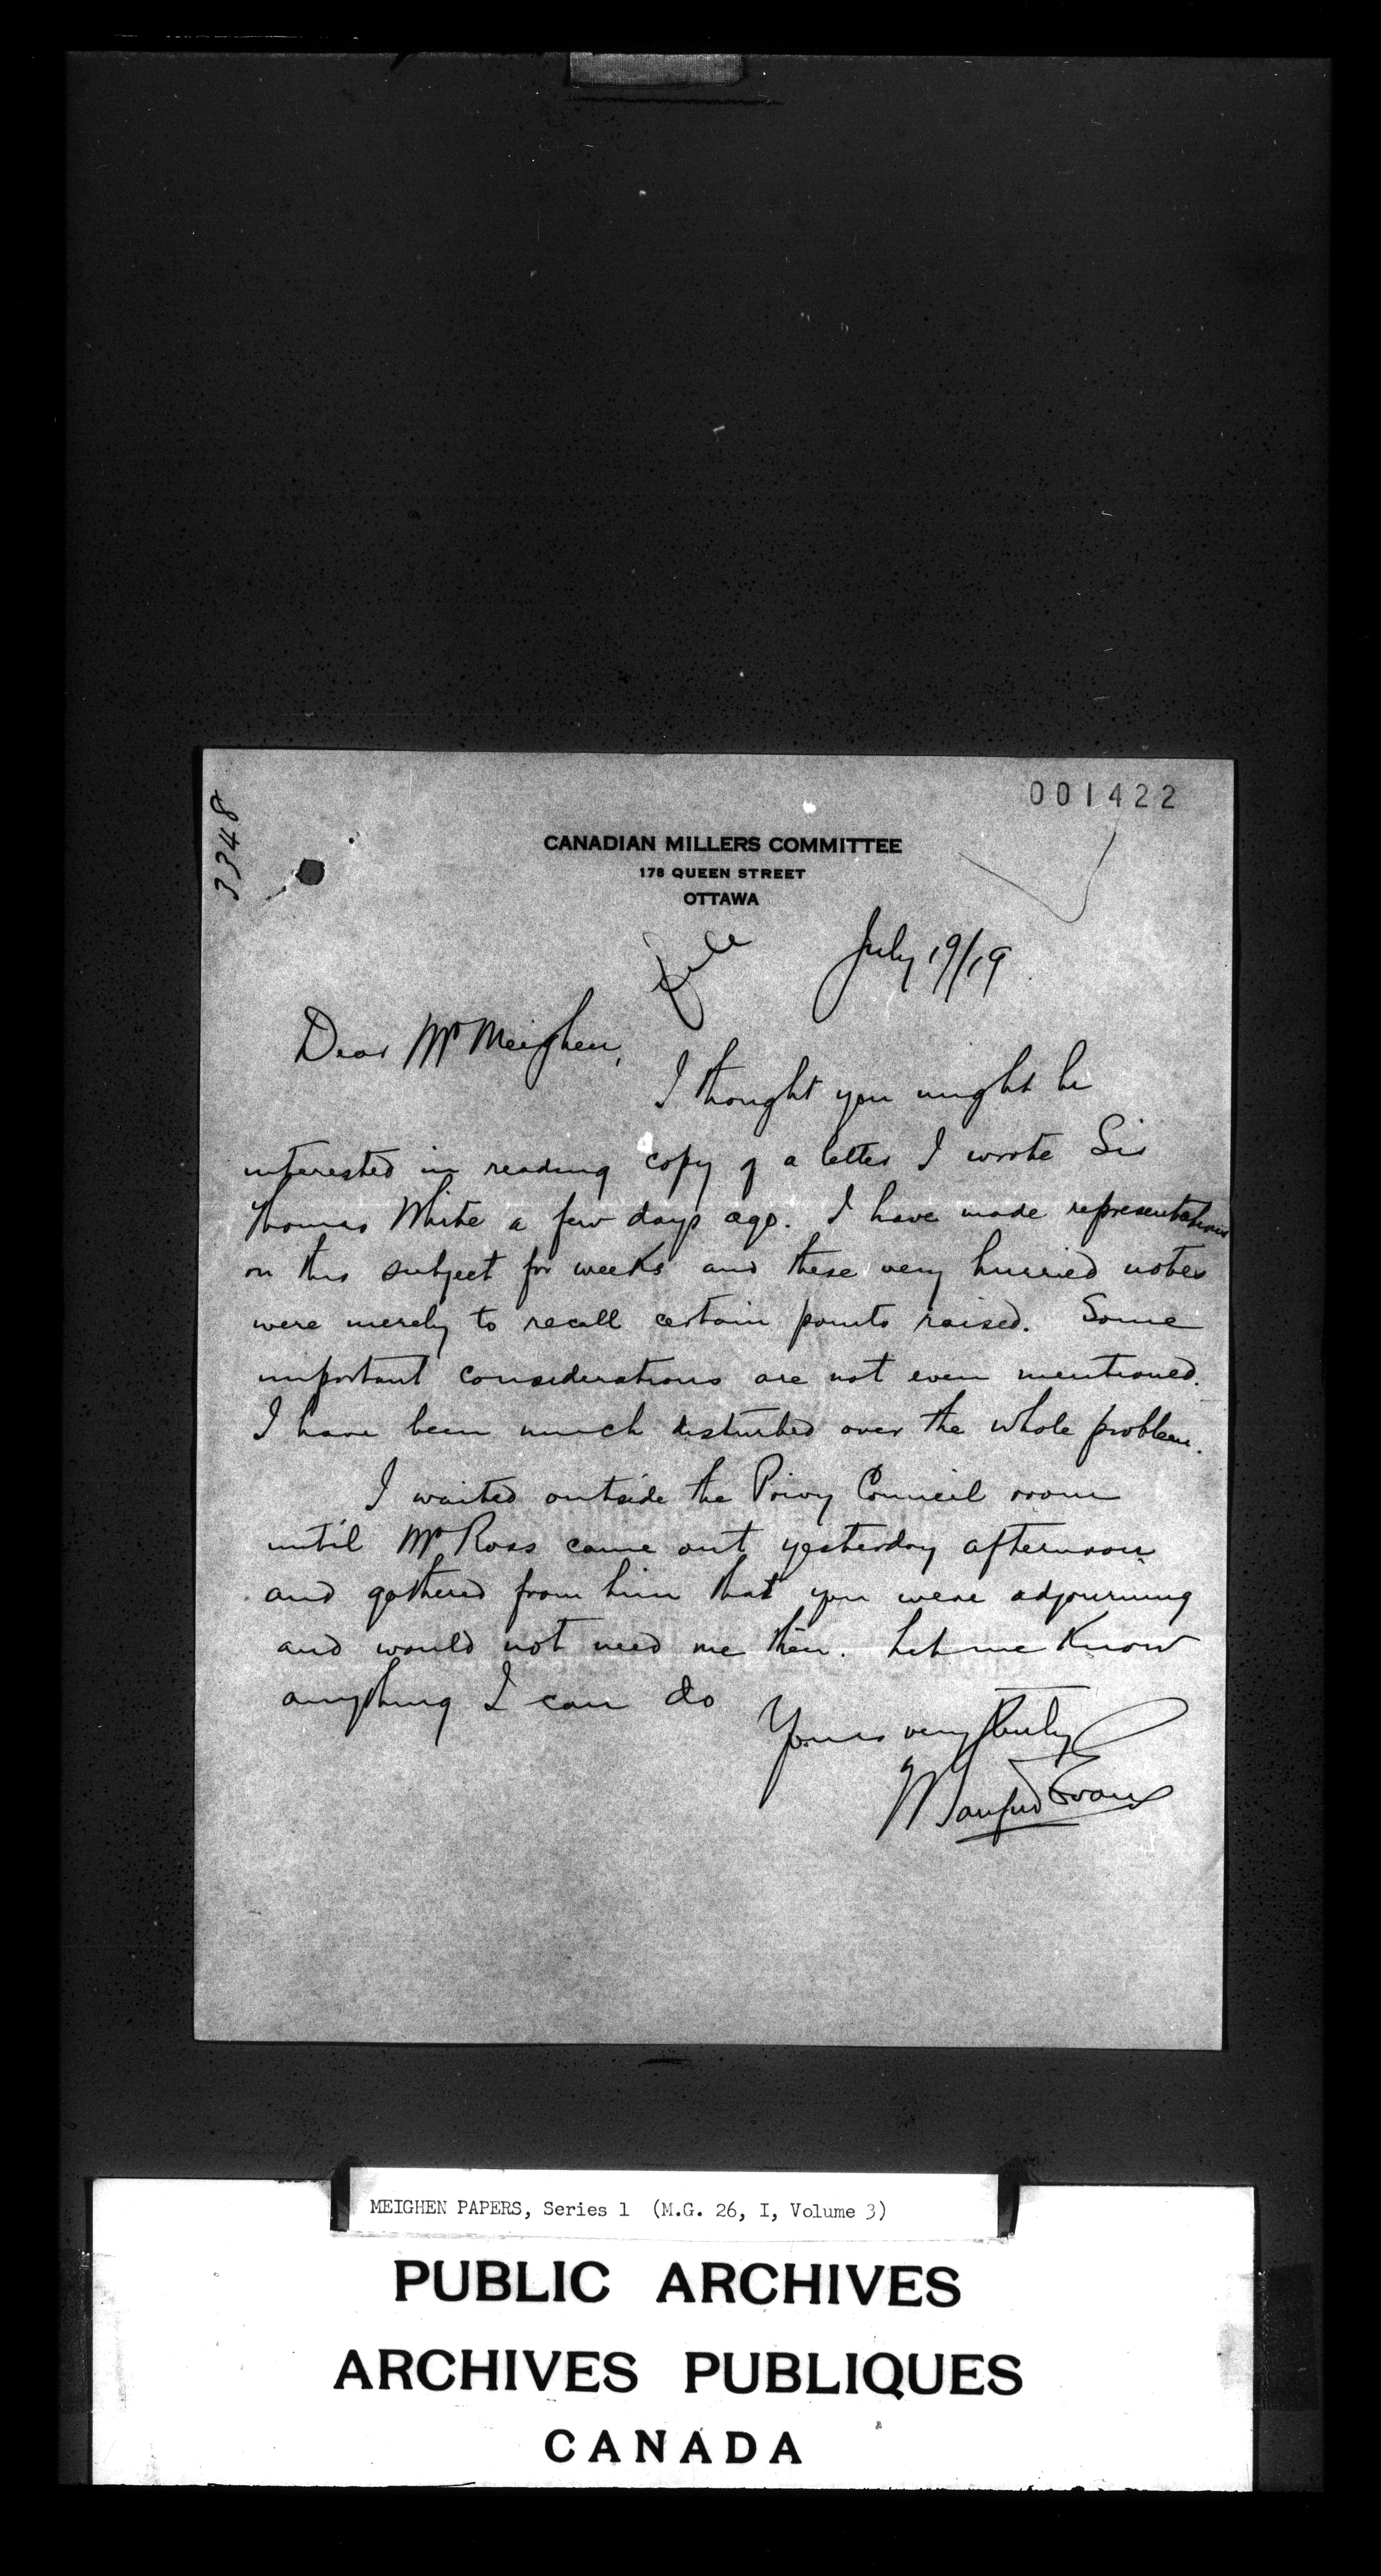 001422
3348
CANADIAN MILLERS COMMITTEE
178 QUEEN STREET
OTTAWA
File
July 19/19
Dear Mr Meighen,
I thought you might be
interested in reading copy of a letter I wrote Sir
Thomas White a few days ago. I have made representations
on this subject for weeks and these very hurried notes
were merely to recall certain points raised. Some
important considerations are not even mentioned.
I have been much disturbed over the whole problem.
I waited outside the Privy Council room
until Mr Ross came out yesterday afternoon
and gathered from him that you were adjourning
and would not need me then. Let me know
anything I can do
Yours very truly
Evans
MEIGHEN PAPERS, Series 1 (M.G. 26, I, Volume 3)
PUBLIC ARCHIVES
ARCHIVES PUBLIQUES
CANADA